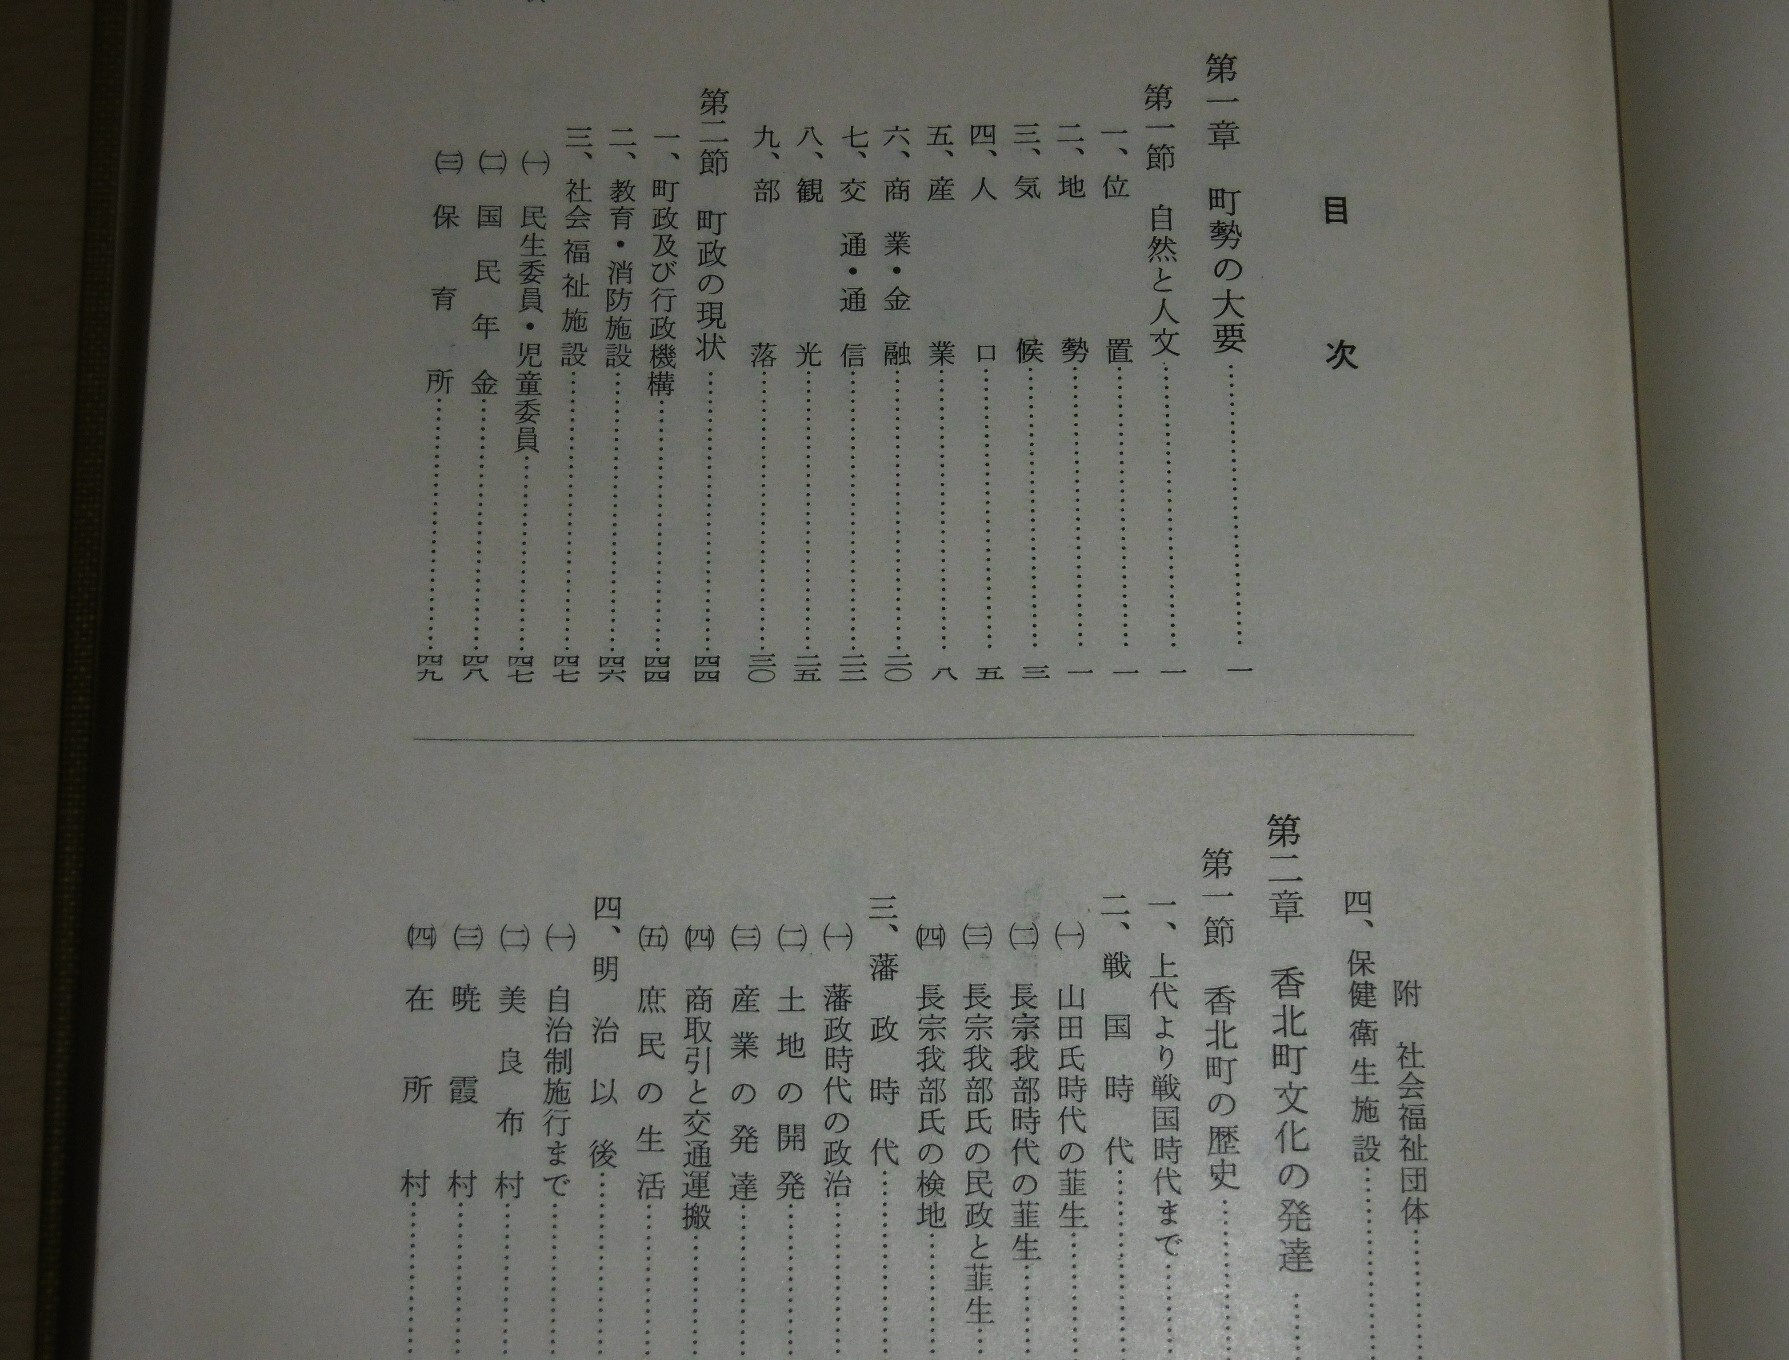 目次
第一章　町勢の大要……一
第一節　自然と人文……一
一、位置……一
二、地勢……一
三、気候……三
四、人口……五
五、産業……八
六、商業・金融……二〇
七、交通・通信……二三
八、観光……二五
九、部落……三〇
第二節　町政の現状……四四
一、町政及び行政機構……四四
二、教育・消防施設……四六
三、社会福祉施設……四七
㈠　民生委員・児童委員……四七
㈡　国民年金……四八
㈢　保育所……四九
附　社会福祉団体……
四、保健衛生施設……
第二章　香北町文化の発達……
第一節　香北町の歴史……
一、上代より戦国時代まで……
二、戦国時代……
㈠　山田氏時代の韮生……
㈡　長宗我部時代の韮生……
㈢　長宗我部氏の民政と韮生……
㈣　長宗我部氏の検地……
三、藩政時代……
㈠　藩政時代の政治……
㈡　土地の開発……
㈢　産業の発達……
㈣　商取引と交通運搬……
㈤　庶民の生活……
四、明治以後……
㈠　自治制施行まで……
㈡　美良布村……
㈢　暁霞村……
㈣　在所村……